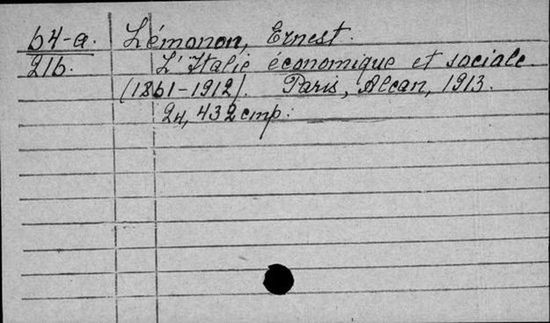 64-a. Lémonon, Ernest.
216. L'Italie économique et sociale
(1861-1912). Paris, Alcan, 1913.
24, 432 cmp.